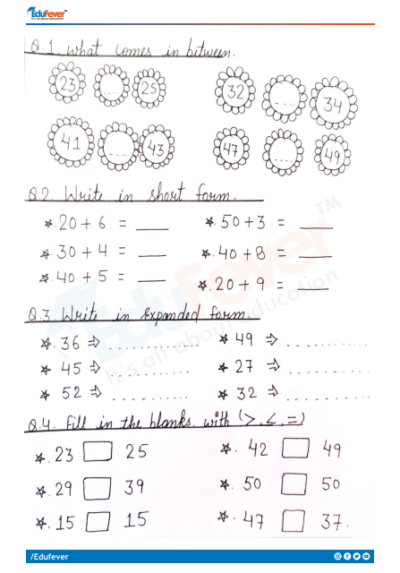 EduFever
It's all about education
Q.1. What comes in between.
23 .... 25 32 .... 34
41 .... 43 47 .... 49
Q.2. Write in short form.
* 20 + 6 = ___ * 50 + 3 = ___
* 30 + 4 = ___ * 40 + 8 = ___
* 40 + 5 = ___ * 20 + 9 = ___
Q.3. Write in expanded form.
* 36 ⇒ ............ * 49 ⇒ ............
* 45 ⇒ ............ * 27 ⇒ ............
* 52 ⇒ ............ * 32 ⇒ ............
Q.4. Fill in the blanks with (>, <, =)
* 23 □ 25 * 42 □ 49
* 29 □ 39 * 50 □ 50
* 15 □ 15 * 47 □ 37.
EduFever™
It's all about education
/Edufever